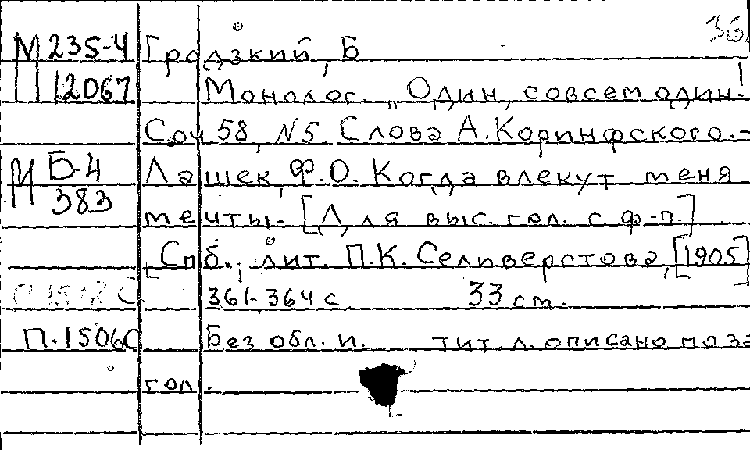 36
М 235-4 Гродзкий, Б
12067 Монолог. „Один, совсем один!
Соч 58, N5. Слова А. Коринфского.-
М Б-4 Лашек, Ф.О. Когда влекут меня
383
мечты.- [Для выс. гол. с ф-п.]
Спб., лит. П.К. Селиверстова, [1905]
361-364 с. 33 см.
П.1506С Без обл. и тит. л. описано по за
гол.